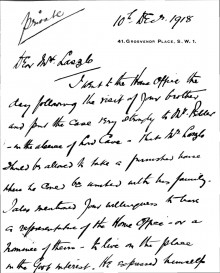 private
10th Decr. 1918
41, GROSVENOR PLACE, S.W.1.
Dear Mr Laszlo
I went to the Home Office the
day following the visit of your brother
and put the case very strongly to Mr
- in the absence of Lord Cave - that Mr Laszlo
should be allowed to take a furnished house
where he could be united with his family.
I also mentioned your willingness to have
a representative of the Home Office - or a
nominee of theirs - to live on the place
in the Govt interest. He expressed himself